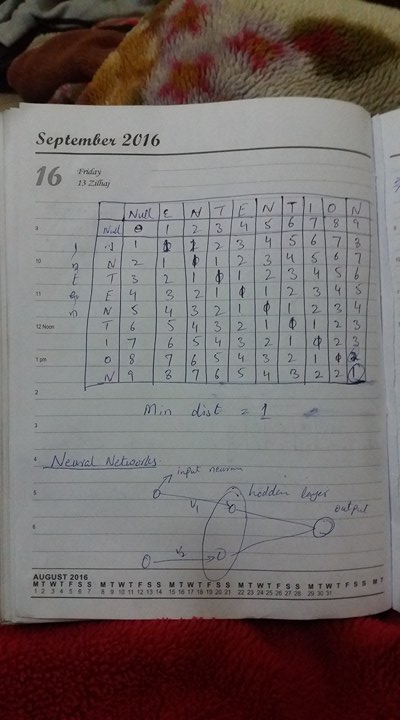 September 2016
16 Friday
13 Zilhaj
Null E N T E N T I O N
Null 0 1 2 3 4 5 6 7 8 9
I 1 1 2 3 4 5 6 7 3
N 2 1 1 2 3 4 5 6 7
T 3 2 1 1 2 3 4 5 6
E 4 3 2 1 1 2 3 4 5
N 5 4 3 2 1 1 2 3 4
T 6 5 4 3 2 1 1 2 3
I 7 6 5 4 3 2 1 2 3
O 8 7 6 5 4 3 2 1 2
N 9 8 7 6 5 4 3 2 2 1
9
10
11
12 Noon
1 pm
2
3
4
5
6
Min dist = 1
Neural Networks
Input neuron
hodden layer
V1
output
AUGUST 2016
M T W T F S S M T W T F S S M T W T F S S M T W T F S S M T W T F S S M T
1 2 3 4 5 6 7 8 9 10 11 12 13 14 15 16 17 18 19 20 21 22 23 24 25 26 27 28 29 30 31